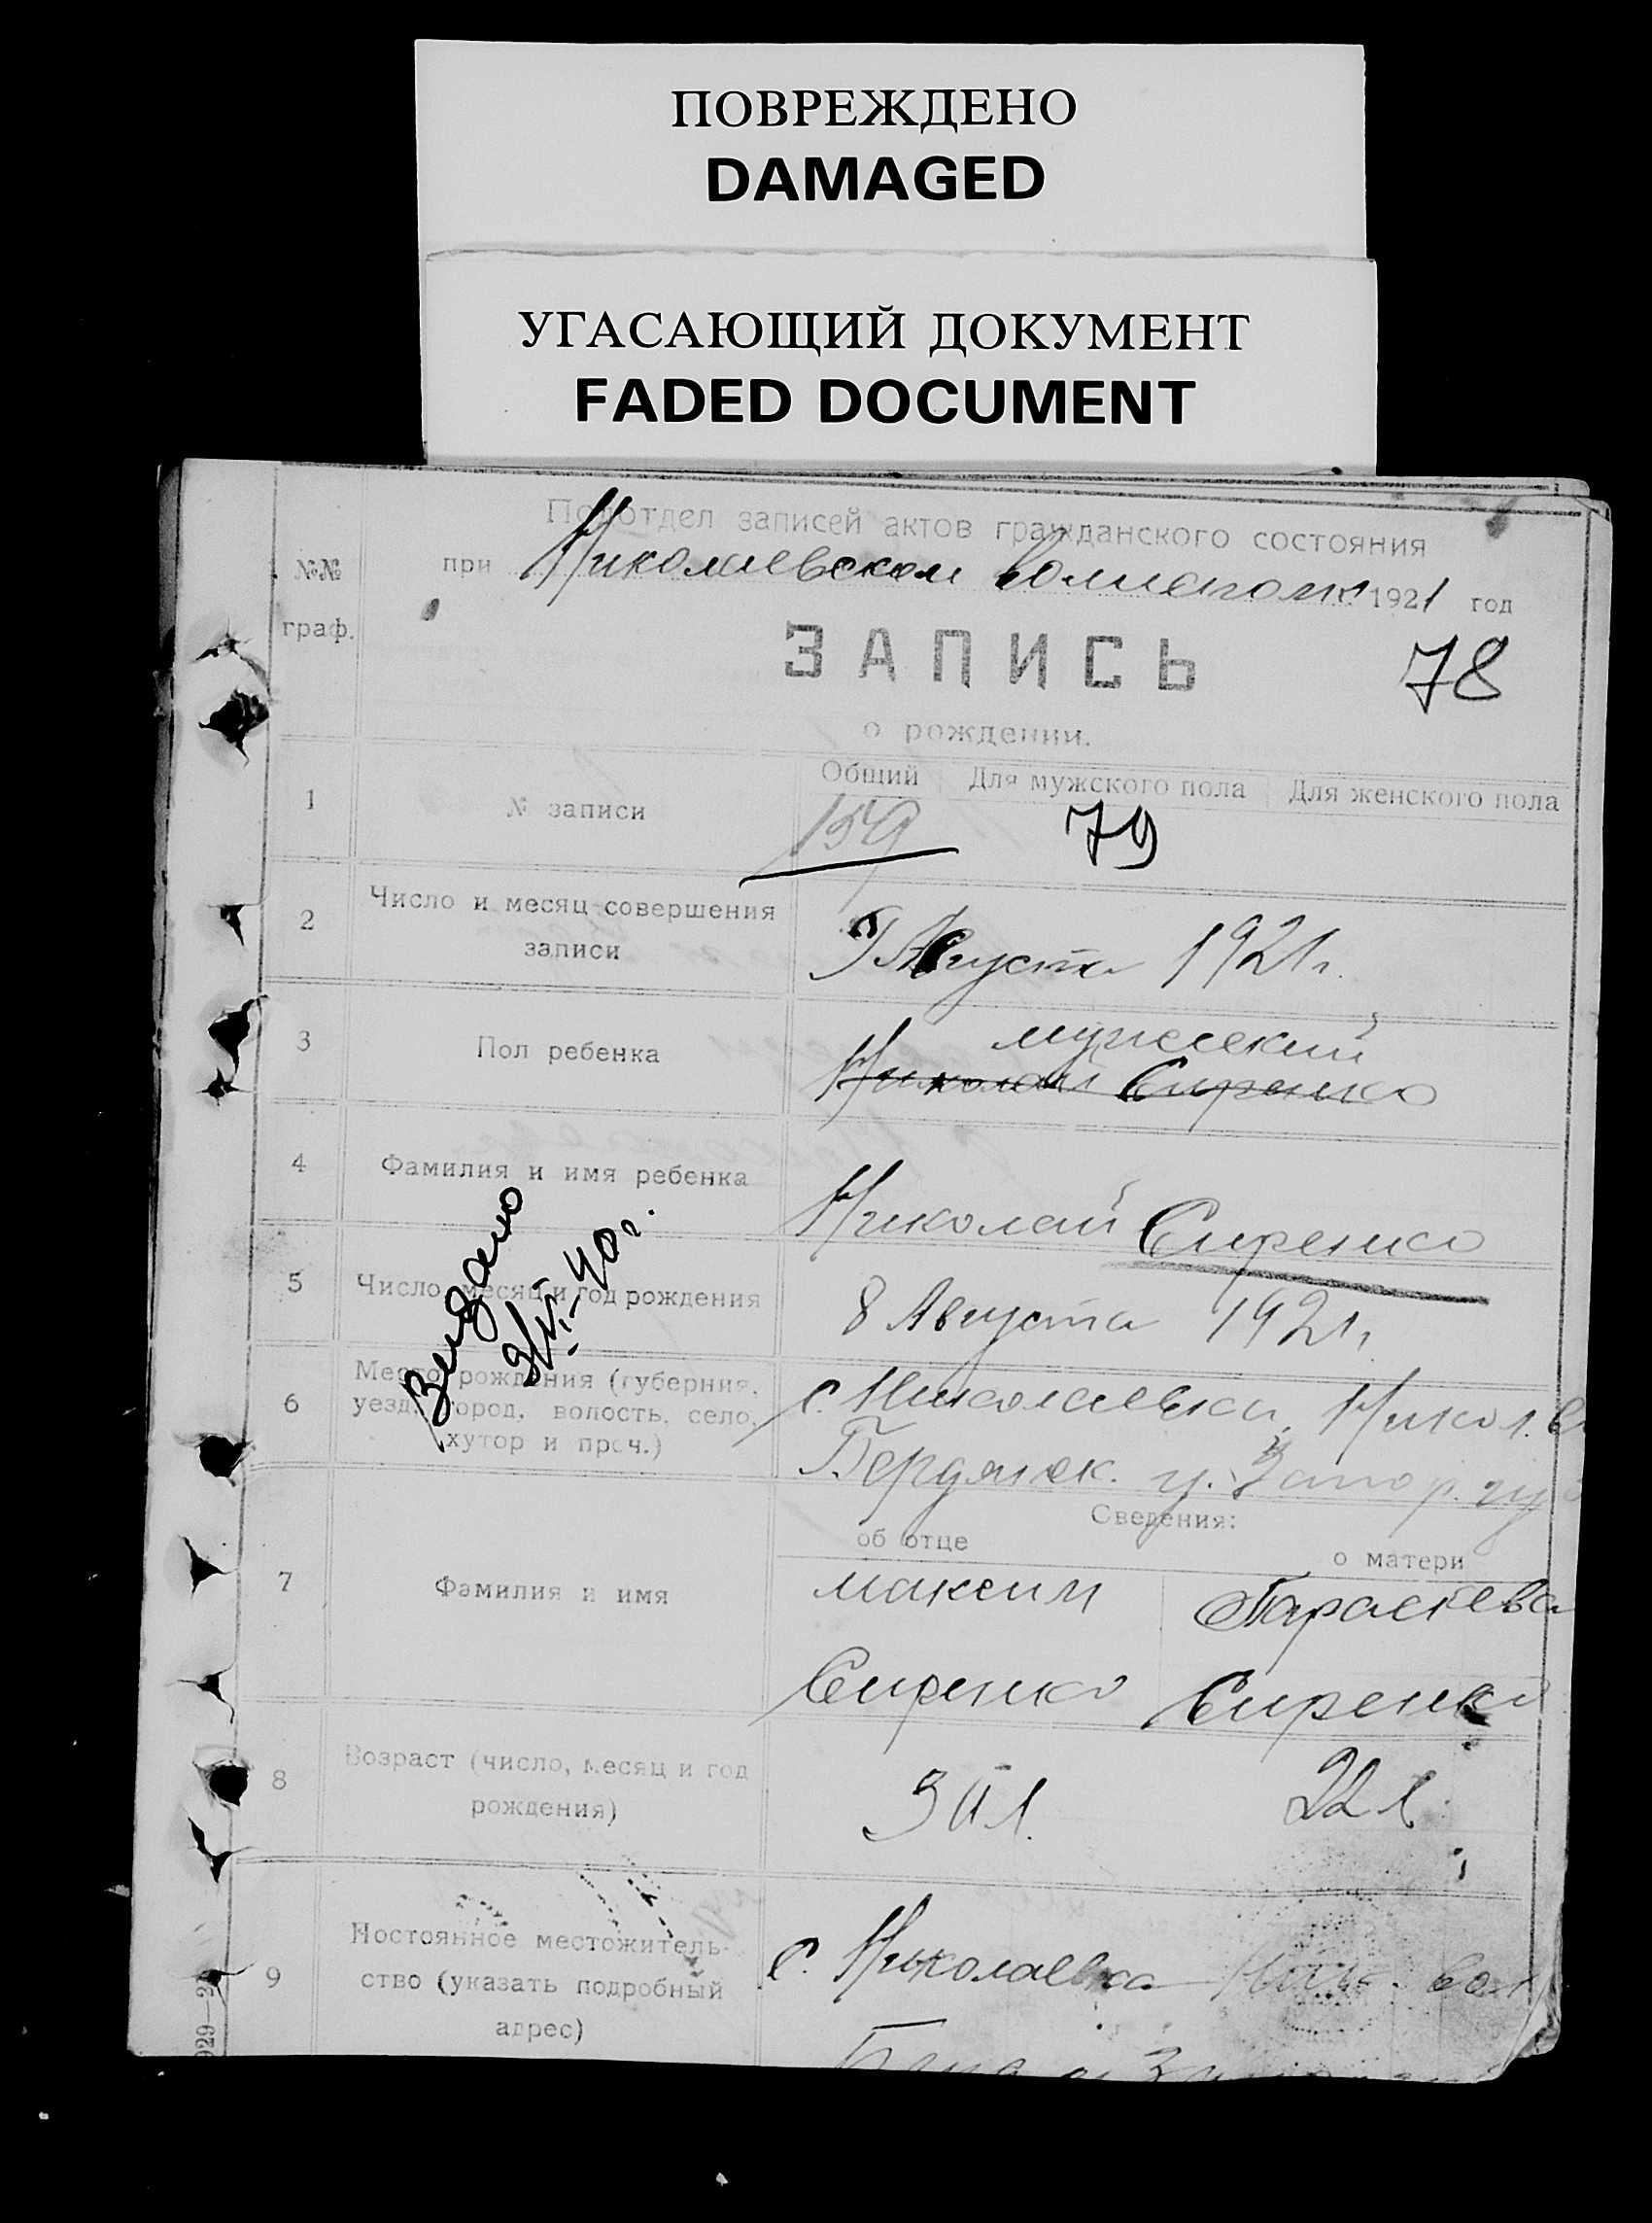 ПОВРЕЖДЕНО
DAMAGED
УГАСАЮЩИЙ ДОКУМЕНТ
FADED DOCUMENT
Подотдел записей актов гражданского состояния
№№ граф.
при Николаевском 1921 год
ЗАПИСЬ
78
о рождении.
Общий Для мужского пола Для женского пола
1 № записи 159 79
2 Число и месяц совершения
записи
Августа 1921 г.
3 Пол ребенка
мужеский
Николай Сиренко
4 Фамилия и имя ребенка
Николай Сиренко
5 Число, месяц и год рождения
8 Августа 1921 г.
Выдано
6 Место рождения (губерния,
уезд, город, волость, село,
хутор и проч.)
с. Николаевка, Никол. в
Бердянск. у. Запор. гу
Сведения:
об отце
о матери
7 Фамилия и имя
Максим
Сиренко
Параскева
Сиренко
8 Возраст (число, месяц и год
рождения)
22 л.
9 Постоянное местожитель-
ство (указать подробный
адрес)
с. Николаевка вол